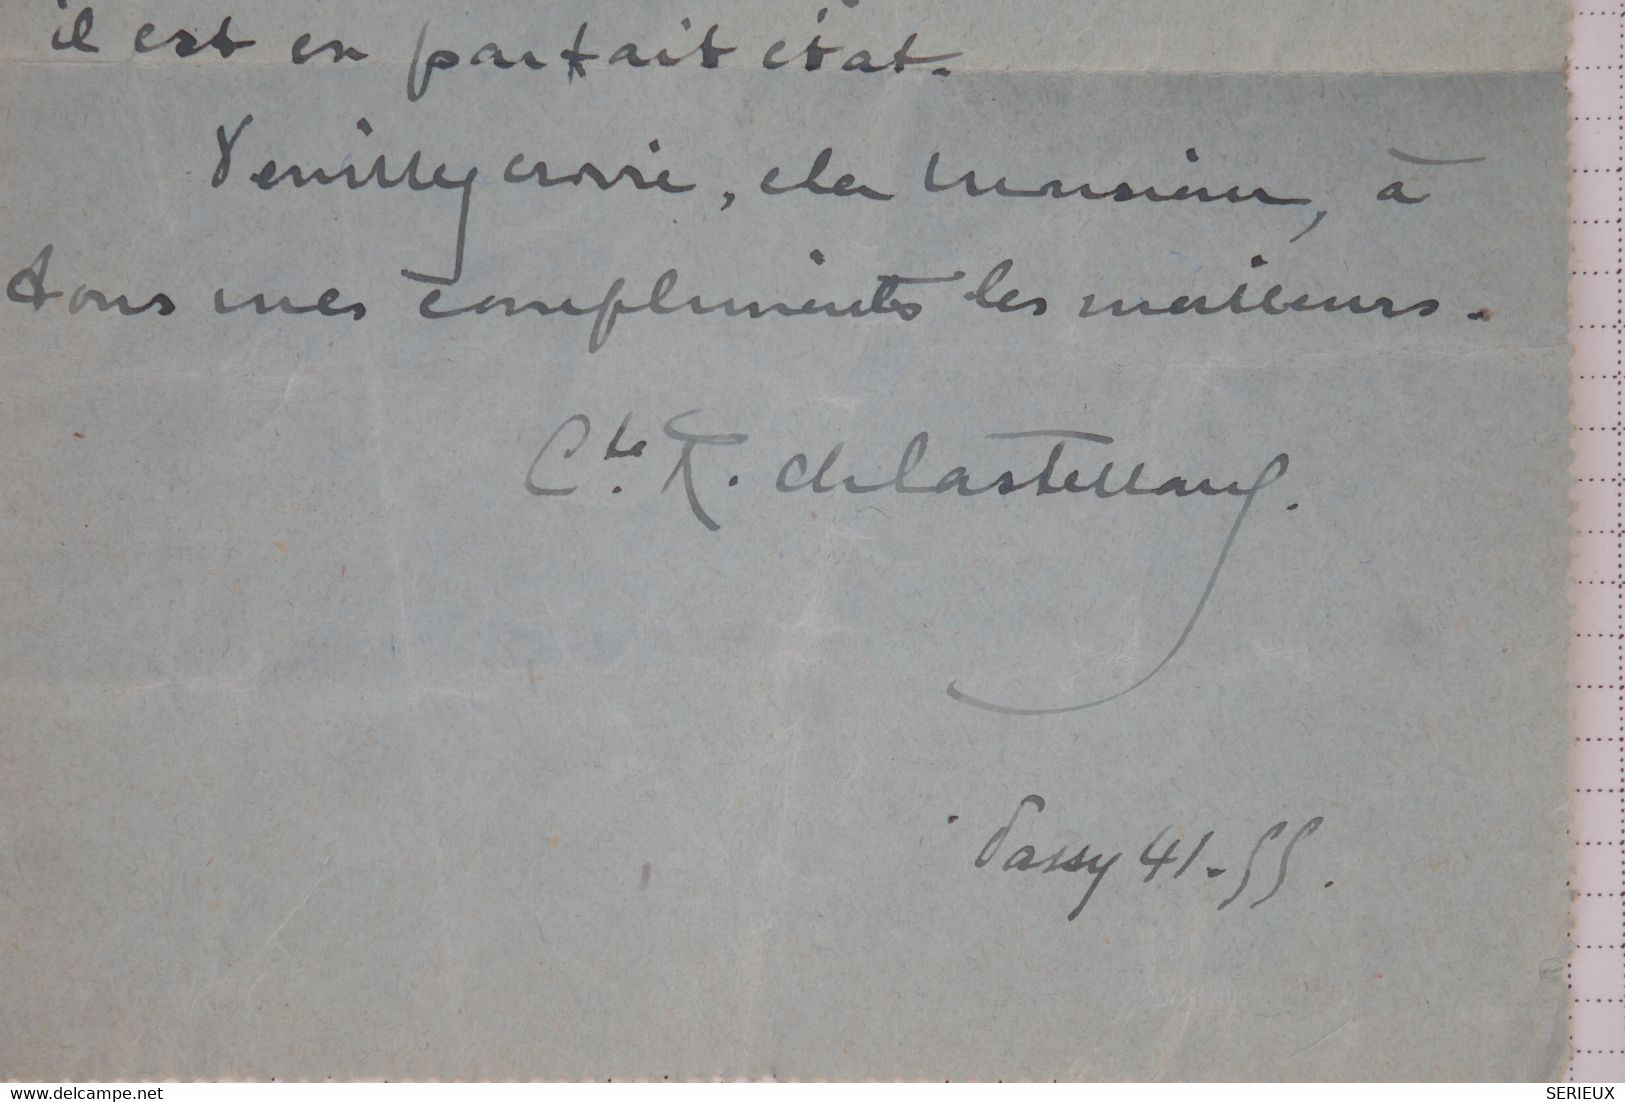 il est en parfait état.
Veuillez croire, cher Monsieur, à
tous mes compliments les meilleurs.
Cte. K. de Castellang.
Passy 41-55.
delcampe.net
SERIEUX